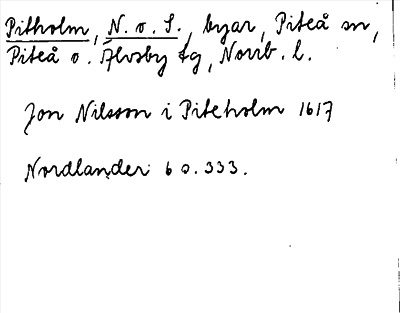 Pitholm, N. o. S., byar, Piteå sn,
Piteå o. Älvsby tg, Norrb. l.
Jon Nilsson i Piteholm 1617
Nordlander 6 s. 333.